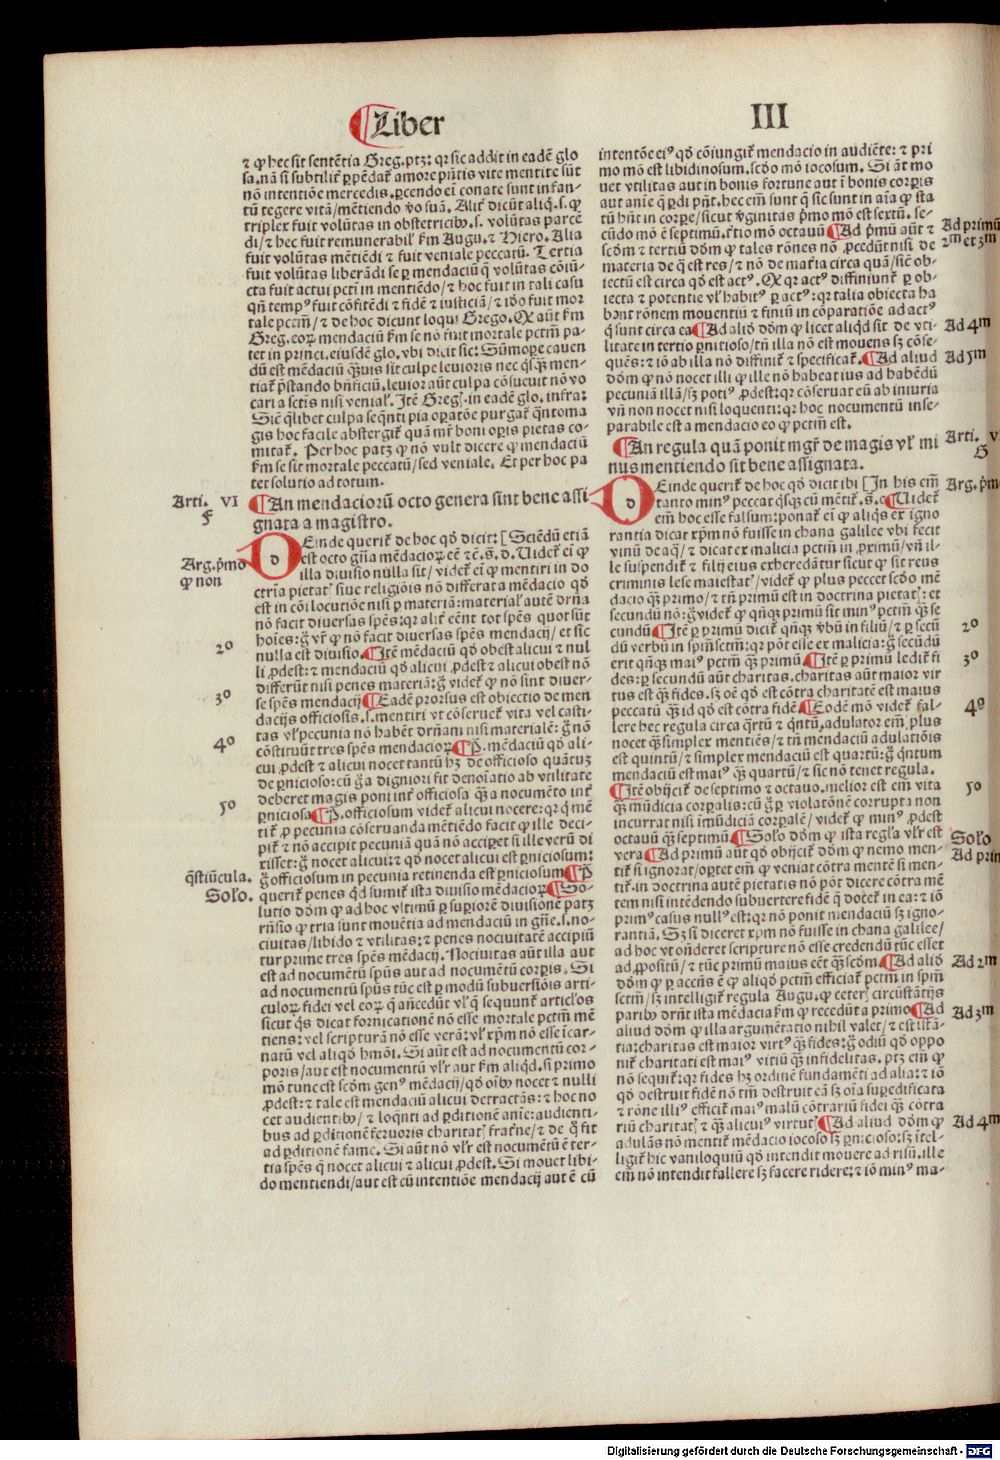 Liber III
⁊ ꝙ hec sit sentētia Greg. ptꝫ: qꝛ sic addit in eadē glo
sa. nā si subtilit̄ ꝑpēdat̄ amore pn̄tis vite mentite sūt
nō intentiōe mercedis. ꝑcendo em̄ conate sunt infan-
tū tegere vitā/mētiendo ꝟo suā. Alit̄ dicūt aliq̄. s. ꝙ
triplex fuit volūtas in obstetricibꝰ. s. volūtas parcē
di/⁊ hec fuit remunerabil̄ ẜm Augu. ⁊ Hiero. Alia
fuit volūtas mētiēdi ⁊ fuit veniale peccatū. Tertia
fuit volūtas liberādi se ꝑ mendaciū q̄ volūtas cōiū-
cta fuit actui pctī in mentiēdo/⁊ hoc fuit in tali casu
qn̄ tempꝰ fuit cōfitēdi ⁊ fidē ⁊ iusticiā/⁊ iō fuit mor
tale pctm̄/⁊ de hoc dicunt loqui Grego. Ex aūt ẜm
Greg. eoꝝ mendaciū ẜm se nō fuit mortale pctm̄ pa-
tet in princi. eiusdē glo. vbi dicit sic: Sūmoꝑe cauen
dū est mendaciū q̄uis sit culpe leuioris nec q̄sꝗ̄ men-
tiat̄ p̄stando bn̄ficiū. leuior aūt culpa cōsueuit nō vo
cari a sctis nisi venial̄. Itē Greg. in eadē glo. infra:
Sicē q̄libet culpa seq̄nti pia oꝑatōe purgat̄ q̄ntoma
gis hoc facile abstergit̄ quā mr̄ boni operis pietas co-
mitat̄. Per hoc patꝫ ꝙ nō vult dicere ꝙ mendaciū
ẜm se sit mortale peccatū/sed veniale. Et per hoc pa
tet solutio ad totum.
Arti. VI
F
¶An mendacioꝝ octo genera sint bene assi
gnata a magistro.
DEinde querit̄ de hoc qd̄ dicit: [Sciēdū etiā
est octo gn̄a mēdacioꝝ eē ⁊ē. s. d. Uidet̄ ei ꝙ
Arg. pͥmo
ꝙ non
illa diuisio nulla sit/videt̄ ei ꝙ mentiri in do
ctrīa pietatꝭ siue religiōis nō differat a mēdacio qd̄
est in cōi locutiōe nisi ꝑ materiā: material̄ autē dr̄na
nō facit diuersas spēs: qꝛ alit̄ eēnt tot spēs quot sūt
hoīes: ḡ vr̄ ꝙ nō facit diuersas spēs mendacij/et sic
2º
nulla est diuisio. ¶Itē mēdaciū qd̄ obest alicui ⁊ nul
li ꝓdest: ⁊ mendaciū qd̄ alicui ꝓdest ⁊ alicui obest nō
differūt nisi penes materiā: ḡ videt̄ ꝙ nō sint diuer-
3º
se spēs mendacij ¶Eadē prorsus est obiectio de men
dacijs officiosis. s. mentiri vt cōseruet̄ vita vel casti-
tas vl̄ pecunia nō habēt dr̄nam nisi materialē: ḡ nō
4º
cōstituūt tres spēs mendacioꝝ ¶P̄. mēdaciū qd̄ ali-
cui ꝓdest ⁊ alicui nocet tantū hꝫ de officioso quātuꝫ
de ꝑnicioso: cū ḡ a digniori fit denoīatio ab vtilitate
deberet magis poni int̄ officiosa q̄ a nocumēto int̄
5º
ꝑniciosa ¶P̄. officiosum videt̄ alicui nocere: qꝛ q̄ mē
tit̄ ꝓ pecunia cōseruanda mētiēdo facit ꝙ ille deci-
pit̄ ⁊ nō accipit pecuniā quā nō acciperet si ille verū di
xisset: ḡ nocet alicui: ⁊ qd̄ nocet alicui est ꝑniciosum:
q̄stiūcula.
ḡ officiosum in pecunia retinenda est ꝑniciosum ¶P̄
Solo.
querit̄ penes qd̄ sumit̄ ista diuisio mēdacioꝝ ¶So-
lutio dōm ꝙ ad hoc vltimū ꝑ superiorē diuisionē patꝫ
rn̄sio ꝙ tria sunt mouētia ad mendaciū in gn̄e. s. no-
ciuitas/libido ⁊ vtilitas: ⁊ penes nociuitatē accipiū
tur prime tres spēs mēdacij. Nociuitas aūt illa aut
est ad nocumētū spūs aut ad nocumētū corpis. Si
ad nocumentū spūs tūc est ꝑ modū subuersiōis arti-
culoꝝ fidei vel eoꝝ q̄ an̄cedūt vl̄ q̄ sequunt̄ articl̄os
sicut q̄s dicat fornicationē nō esse mortale pctm̄ mē
tiens: vel scripturā nō esse verā: vl̄ xp̄m nō esse īcar-
natū vel aliqd̄ hmōi. Si aūt est ad nocumētū cor-
poris/aut est nocumentū vl̄r aut ẜm aliqd̄. si primo
mō tunc est scdm̄ genꝰ mēdacij/qd̄ oībꝰ nocet ⁊ nulli
ꝓdest: ⁊ tale est mendaciū alicui detractās: ⁊ hoc no
cet audientibꝰ/⁊ loq̄nti ad ꝑditionē anīe: audienti-
bus ad ꝑditionē feruoris charitatꝭ frat̄ne/⁊ de q̄ fit
ad ꝑditionē fame. Si aūt nō vl̄r est nocumētū ē ter-
tia spēs q̄ nocet alicui ⁊ alicui ꝓdest. Si mouet libi-
do mentiendi/aut est cū intentiōe mendacij aut ē cū
intentōe eiꝰ qd̄ cōiungit̄ mendacio in audiēte: ⁊ pri
mo mō est libidinosum. scdo mō iocosum. Si āt mo
uet vtilitas aut in bonis fortune aut ī bonis corpis
aut anīe q̄ ꝑdi pn̄t. hec em̄ sunt q̄ sic sunt in aīa ꝙ sta
tū hn̄t in corpe/sicut v̓ginitas pͥmo mō est sextū. se-
cūdo mō ē septimū. t̄tio mō octauū ¶Ad pͥmū aūt ⁊
Ad primū
2ᵐ et 3ᵐ
scdm̄ ⁊ tertiū dōm ꝙ tales rōnes nō ꝓcedūt nisi de
materia de q̄ est res/⁊ nō de mat̄ia circa quā/sicē ob-
iectū est circa qd̄ est actꝰ. Ex qꝛ actꝰ diffiniunt̄ ꝑ ob-
iecta ⁊ potentie vl̄ habitꝰ ꝑ actꝰ: qꝛ talia obiecta ha
bent rōnem mouentiū ⁊ finiū in cōparatiōe ad actꝰ
q̄ sunt circa ea ¶Ad aliō dōm ꝙ licet aliqd̄ sit de vti-
Ad 4ᵐ
litate in tertio ꝑnitioso/tn̄ illa nō est mouens sꝫ cōse-
quēs: ⁊ iō ab illa nō diffinit̄ ⁊ specificat̄. ¶Ad aliud
Ad 5ᵐ
dōm ꝙ nō nocet illi ꝙ ille nō habeat ius ad habēdū
pecuniā illā/sꝫ potiꝰ ꝓdest: qꝛ cōseruat eū ab iniuria
vn̄ non nocet nisi loquenti: qꝛ hoc nocumentū inse-
parabile est a mendacio eo ꝙ pctm̄ est.
¶An regula quā ponit mgr̄ de magis vl̄ mi
Arti. V
G
nus mentiendo sit bene assignata.
DEinde querit̄ de hoc qd̄ dicit ibi [In his em̄
Arg. pͥmo
tanto minꝰ peccat q̄sꝗ̄ cū mētit̄. s. c ¶Uidet̄
em̄ hoc esse falsum: ponat̄ ei ꝙ aliq̄s ex igno
rantia dicat xp̄m nō fuisse in chana galilee vbi fecit
vinū de aq̄/⁊ dicat ex malicia pctm̄ in ꝓrimū/vn̄ il-
le suspendit̄ ⁊ filij eius exheredāt̄ sicut ꝙ sit reus
criminis lese maiestatꝭ/videt̄ ꝙ plus peccet scdo mē
dacio q̄ primo/⁊ tn̄ primū est in doctrina pietatꝭ: et
secundū nō: ḡ videt̄ ꝙ q̄nqꝫ primū sit minꝰ pctm̄ q̄ se
2º
cundū ¶Itē ꝑ primū dicit̄ q̄nqꝫ v̓bū in filiū/⁊ ꝑ secū
dū verbū in spm̄sctm̄: qꝛ pōt esse ex malicia: ḡ secūdū
3º
erit q̄nqꝫ maiꝰ pctm̄ q̄ primū. ¶Itē ꝑ primū ledit̄ fi
des: ꝑ secundū aūt charitas. charitas aūt maior vir
tus est q̄ fides. sꝫ oē qd̄ est cōtra charitatē est maius
4º
peccatū q̄ id qd̄ est cōtra fidē ¶Eodē mō videt̄ fal-
lere hec regula circa q̄rtū ⁊ q̄ntū. adulator em̄ plus
nocet q̄ simplex mentiēs/⁊ tn̄ mendaciū adulatiōis
est quintū/⁊ simplex mendaciū est quartū: ḡ q̄ntum
mendaciū est maiꝰ q̄ quartū/⁊ sic nō tenet regula.
5º
¶Itē obijcit̄ de septimo ⁊ octauo. melior est em̄ vita
q̄ mūdicia corꝑalis: cū ḡ ꝑ violatōnē corrupta non
incurrat nisi īmūdiciā corꝑalē/videt̄ ꝙ minꝰ ꝓdest
Solo
octauū q̄ septimū. ¶Solo dōm ꝙ ista regl̄a vl̄r est
Ad prim
vera ¶Ad primū aūt qd̄ obijcit̄ dōm ꝙ nemo men-
tit̄ si ignorat/oꝑtet em̄ ꝙ veniat cōtra mentē si men-
tit̄. in doctrina autē pietatis nō pōt dicere cōtra mē
tem nisi intēdendo subuertere fidē q̄ docet̄ in ea: ⁊ iō
primꝰ casus nullꝰ est: qꝛ nō ponit mendaciū sꝫ igno-
rantiā. Sꝫ si diceret xp̄m nō fuisse in chana galilee/
ad hoc vt on̄deret scripture nō esse credendū tūc esset
Ad 2ᵐ
ad ꝓpositū/⁊ tūc primū maius eēt q̄ scdm̄ ¶Ad aliō
dōm ꝙ ꝑ accn̄s ē ꝙ aliqd̄ pctm̄ efficiat̄ pctm̄ in spm̄
sctm̄/sꝫ intelligit̄ regula Augu. ꝙ ceterꝭ circūstātijs
Ad 3ᵐ
paribꝰ dn̄t ista mēdacia ẜm ꝙ recedūt a primo ¶Ad
aliud dōm ꝙ illa argumētatio nihil valet/⁊ est istā-
tia: charitas est maior virtꝰ q̄ fides: ḡ odiū qd̄ oppo
nit̄ charitati est maiꝰ vitiū q̄ infidelitas. ptꝫ em̄ ꝙ
nō sequit̄: qꝛ fides hꝫ ordinē fundamēti ad alia: ⁊ iō
qd̄ destruit fidē nō tm̄ destruit eā sꝫ oīa suꝑedificata
⁊ rōne illiꝰ efficit̄ maiꝰ malū cōtrariū fidei q̄ cōtra
Ad 4ᵐ
riū charitatꝭ ⁊ q̄ alicuiꝰ virtutꝭ ¶Ad aliud dōm ꝙ
adulās nō mentit̄ mēdacio iocoso sꝫ ꝑnicioso: sꝫ ītel-
ligit̄ hic vaniloquiū qd̄ intendit mouere ad risū. ille
em̄ nō intendit fallere sꝫ facere ridere: ⁊ iō minꝰ ma-
Digitalisierung gefördert durch die Deutsche Forschungsgemeinschaft - DFG